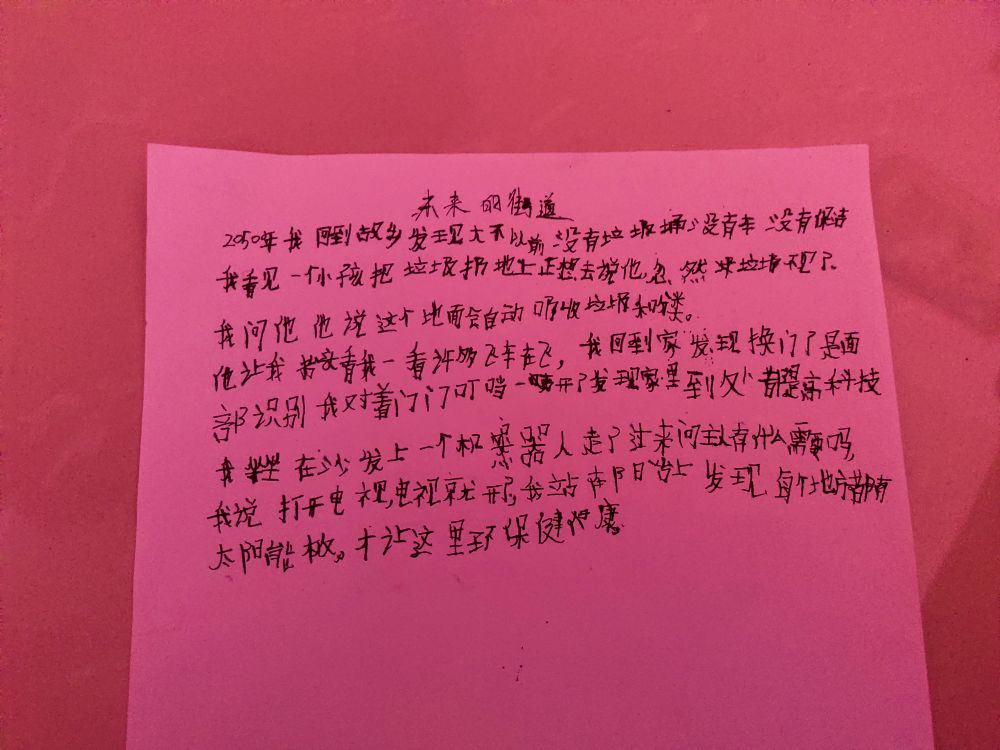 未来的街道
2050年我回到故乡发现大不以前没有垃圾桶没有车没有保洁
我看见一个小孩把垃圾扔地上正想去说他,忽然垃圾不见了。
我问他他说这个地面会自动吸收垃圾和分类。
他让我看我一看许多飞车在飞,我回到家发现换门了是面
部识别我对着门门叮当一开了发现家里到处都是高科技
我坐在沙发上一个机器人走了过来问主人有什么需要吗,
我说打开电视,电视就开了,我站在阳台上发现每个地方都有
太阳能板。才让这里环保健康